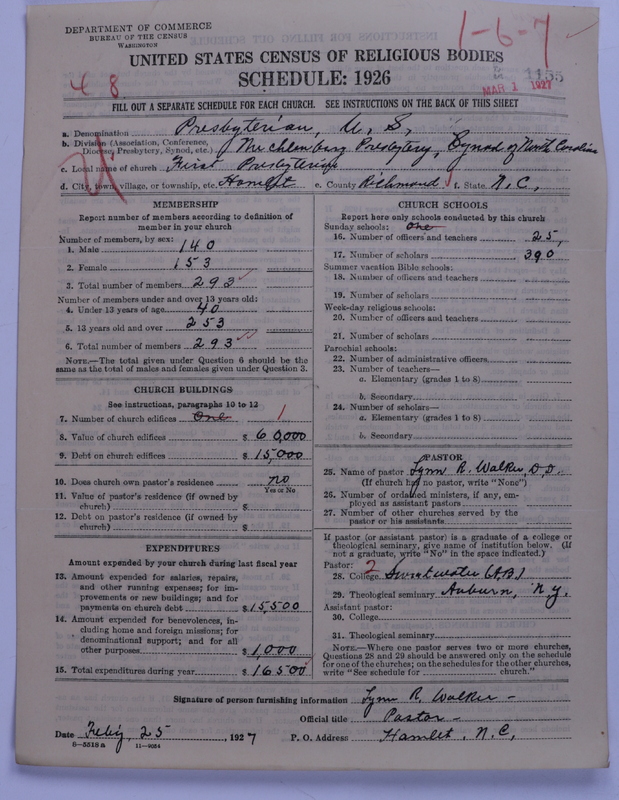 DEPARTMENT OF COMMERCE
BUREAU OF THE CENSUS
WASHINGTON
1-6-7
UNITED STATES CENSUS OF RELIGIOUS BODIES
SCHEDULE: 1926
1155
MAR 1 1927
4 8
FILL OUT A SEPARATE SCHEDULE FOR EACH CHURCH. SEE INSTRUCTIONS ON THE BACK OF THIS SHEET
a. Denomination Presbyterian, U, S,
b. Division (Association, Conference, Diocese, Presbytery, Synod, etc.) Mechlenburg Presbytery, Synod of North Carolina
c. Local name of church First Presbyterian
d. City, town, village, or township, etc. Hamlet e. County Richmond f. State N, C,
MEMBERSHIP
Report number of members according to definition of
member in your church
Number of members, by sex:
1. Male 140
2. Female 153
3. Total number of members 293
Number of members under and over 13 years old:
4. Under 13 years of age 40
5. 13 years old and over 253
6. Total number of members 293
NOTE.—The total given under Question 6 should be the
same as the total of males and females given under Question 3.
CHURCH BUILDINGS
See instructions, paragraphs 10 to 12
7. Number of church edifices One 1
8. Value of church edifices $ 60,000
9. Debt on church edifices $ 15,000
10. Does church own pastor's residence no
Yes or No
11. Value of pastor's residence (if owned by
church) $
12. Debt on pastor's residence (if owned by
church) $
EXPENDITURES
Amount expended by your church during last fiscal year
13. Amount expended for salaries, repairs,
and other running expenses; for im-
provements or new buildings; and for
payments on church debt $ 15,500
14. Amount expended for benevolences, in-
cluding home and foreign missions; for
denominational support; and for all
other purposes $ 1,000
15. Total expenditures during year $ 16500
CHURCH SCHOOLS
Report here only schools conducted by this church
Sunday schools: One
16. Number of officers and teachers 25,
17. Number of scholars 390
Summer vacation Bible schools:
18. Number of officers and teachers
19. Number of scholars
Week-day religious schools:
20. Number of officers and teachers
21. Number of scholars
Parochial schools:
22. Number of administrative officers
23. Number of teachers—
a. Elementary (grades 1 to 8)
b. Secondary
24. Number of scholars—
a. Elementary (grades 1 to 8)
b. Secondary
PASTOR
25. Name of pastor Lynn R. Walker, D. D.
(If church had no pastor, write "None")
26. Number of ordained ministers, if any, em-
ployed as assistant pastors
27. Number of other churches served by the
pastor or his assistants
If pastor (or assistant pastor) is a graduate of a college or
theological seminary, give name of institution below. (If
not a graduate, write "No" in the space indicated.)
Pastor: 2
28. College Sweetwater (A.B)
29. Theological seminary Auburn, N. Y.
Assistant pastor:
30. College
31. Theological seminary
NOTE.—Where one pastor serves two or more churches,
Questions 28 and 29 should be answered only on the schedule
for one of the churches; on the schedules for the other churches,
write "See schedule for church."
Signature of person furnishing information Lynn R. Walker -
Official title Pastor -
Date Feb'y 25, 1927 P. O. Address Hamlet, N. C,
8-5518 a 11-9024